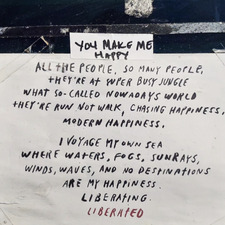 YOU MAKE ME
HAPPY
ALL THE PEOPLE, SO MANY PEOPLE,
THEY'RE AT SUPER BUSY JUNGLE
WHAT SO-CALLED NOWADAYS WORLD
THEY'RE RUN NOT WALK, CHASING HAPPINESS,
MODERN HAPPINESS.
I VOYAGE MY OWN SEA
WHERE WATERS, FOGS, SUNRAYS,
WINDS, WAVES, AND NO DESTINATIONS
ARE MY HAPPINESS.
LIBERATING.
LIBERATED